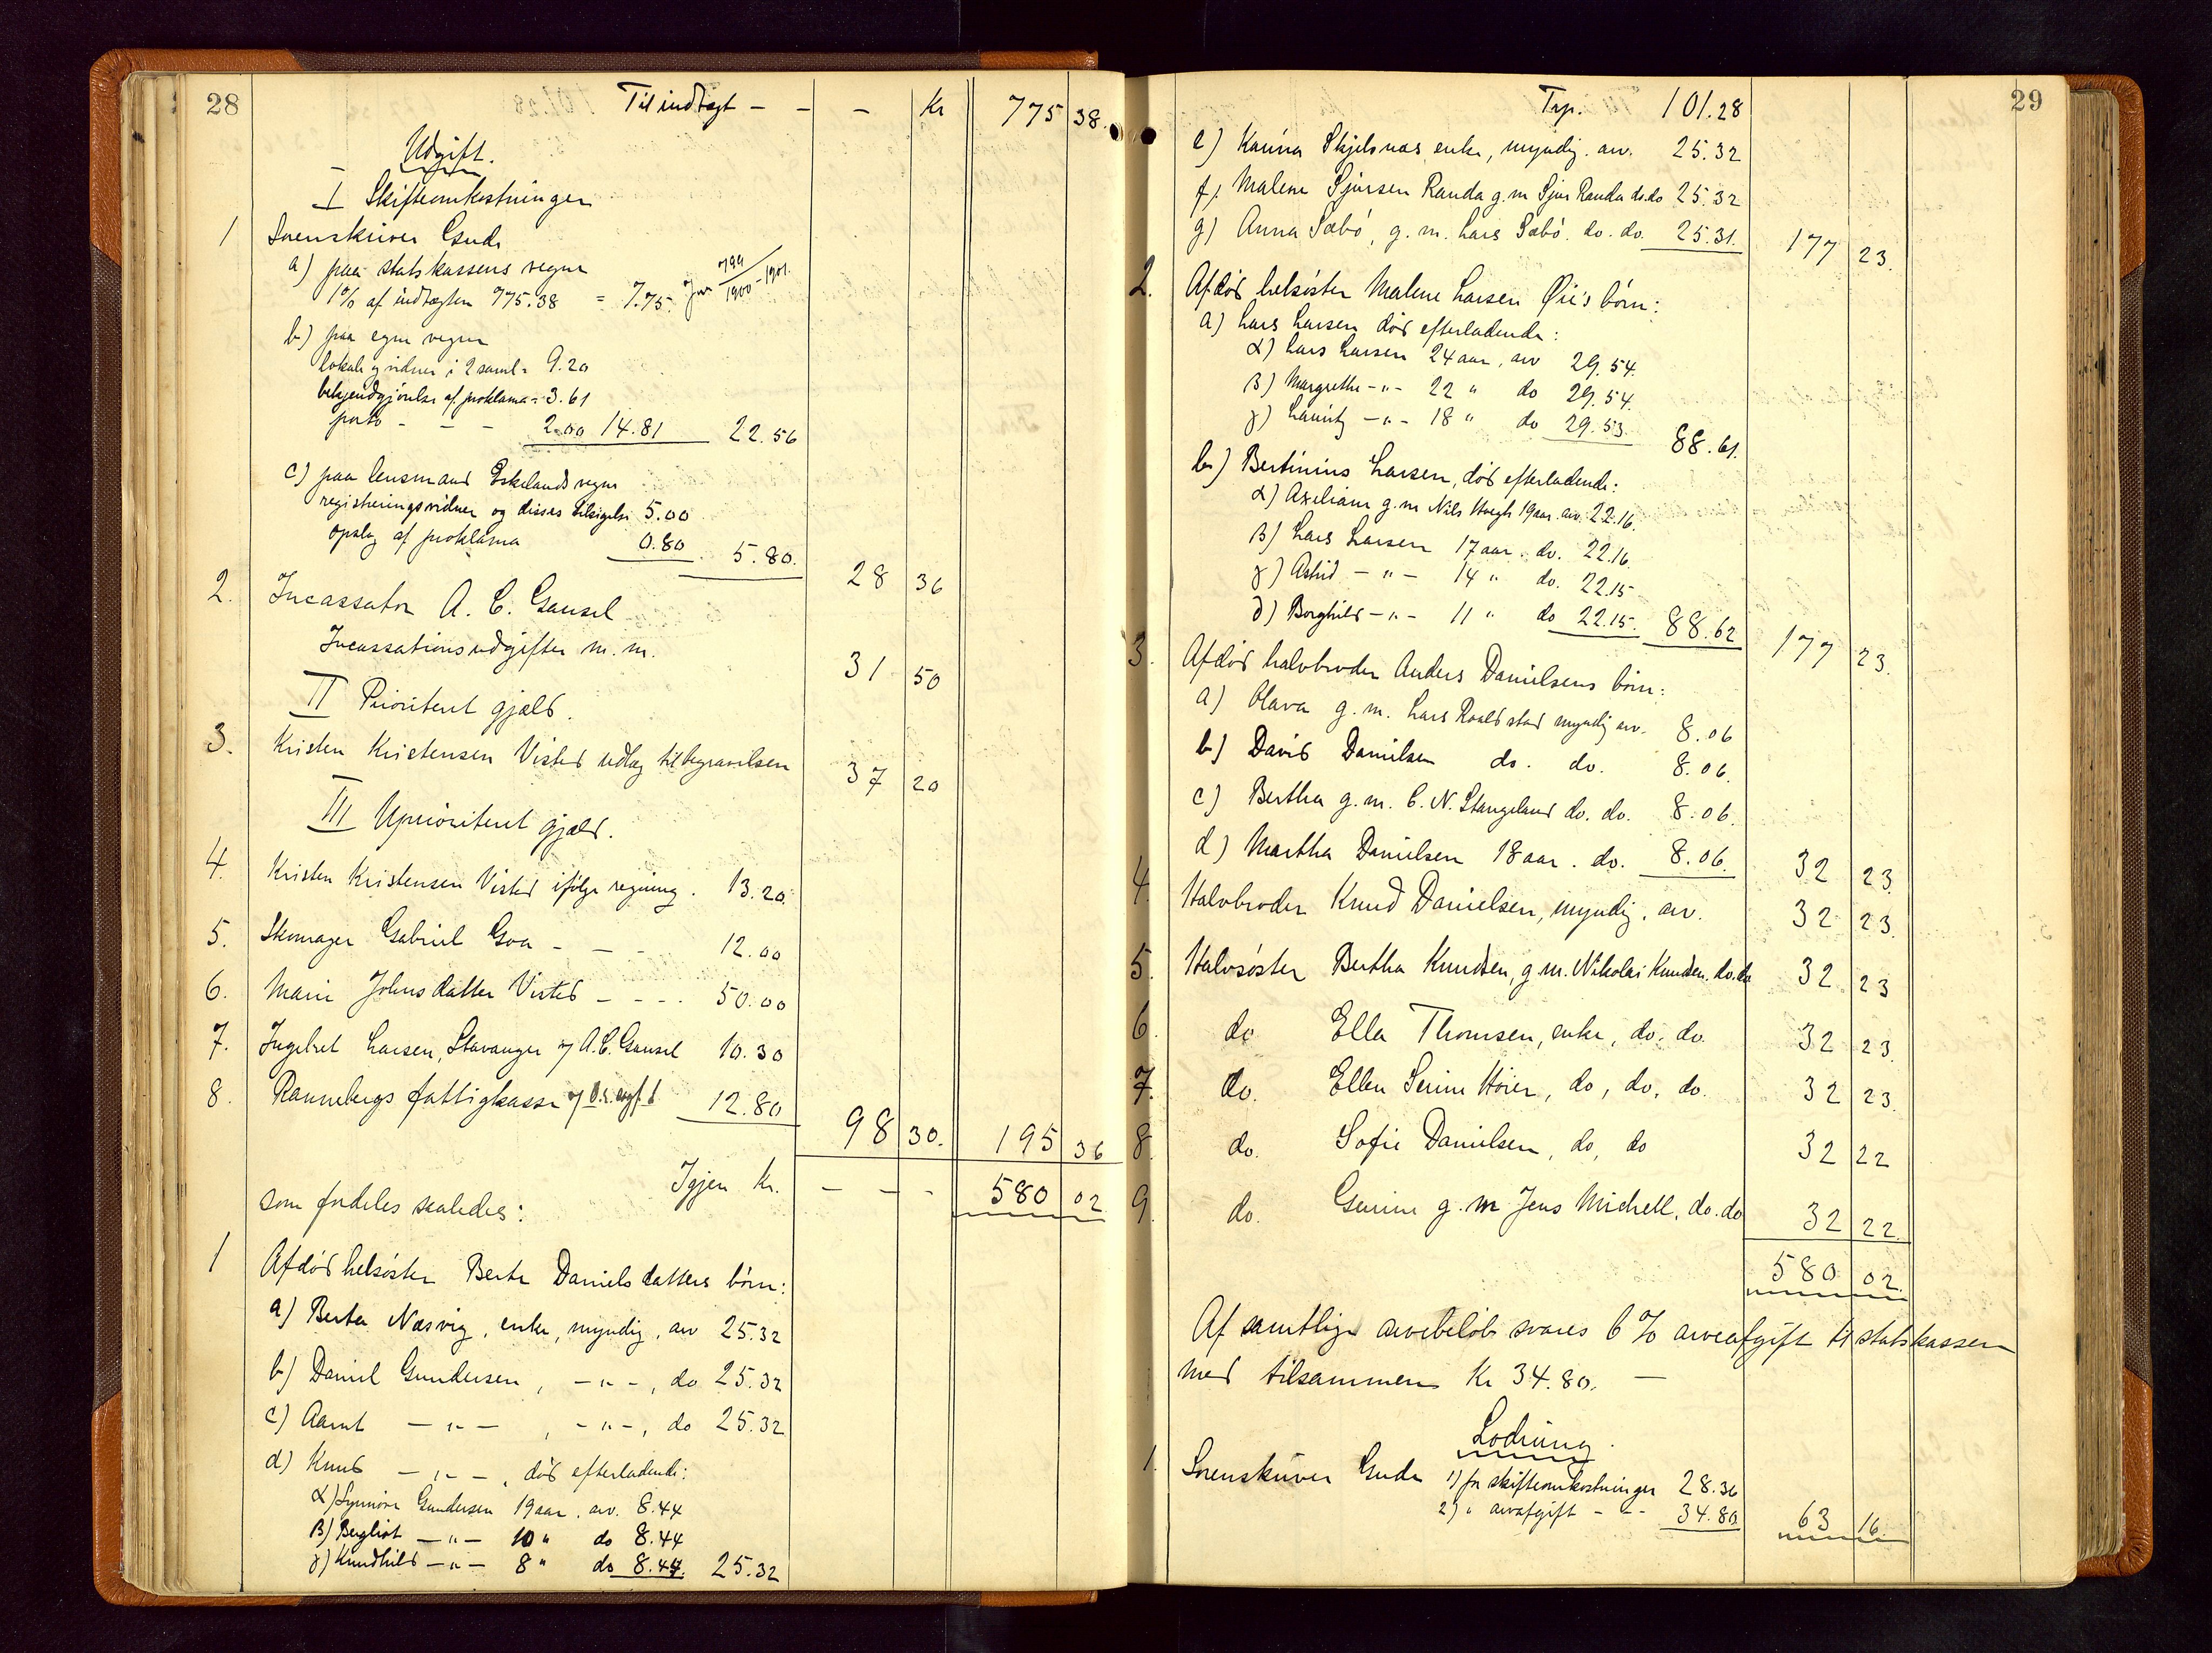 28
Til indtægt - - - Kr 775 38.
Udgift.
I Skifteomkostninger
1 Sorenskriver Gude
a) paa statskassens vegne
1% af indtægten 775.38 = 7.75. Jur 799/1900-1901.
b) paa egne vegne
lokale og vidner i 2 saml = 9.20
bekjendtgjørelse af proklama = 3.61
porto - - - 2.00 14.81 22.56
c) paa lensmand Eskelands vegne
registreringsvidner og disses tilsigelse 5.00
opslag af proklama 0.80 5.80. 28 36
2. Incassator A. C. Gausel
Incassationsudgifter m. m. 31 50
II Prioritert gjæld.
3. Kristen Kristensen Visted udlæg til begravelsen 37 20
III Uprioritert gjæld.
4. Kristen Kristensen Visted ifølge regning. 13.20
5. Skomager Gabriel Goa - - - 12.00
6. Marie Johnsdatter Visted - - - - 50.00
7. Ingebret Larsen, Stavanger v/ A. C. Gausel 10.30
8. Rannebergs fattigkasse v/ 12.80 98 30. 195 36
Igjen Kr. - - - 580 02
som fordeles saaledes:
1 Afdød helsøster Berte Danielsdatters børn:
a) Berta Næsvig, enke, myndig, arv 25.32
b) Daniel Gundersen, - " -, do 25.32
c) Aamt - " - , - " -, do 25.32
d) Knud - " - , død efterladende:
α) Synnøve Gundersen 19 aar. arv. 8.44
β) Bergliot - " - 10 " do 8.44
γ) Knudhild - " - 8 " do 8.44. 25.32
29
Trp. 101.28
e) Karina Skjelsnæs, enke, myndig. arv. 25.32
f). Malene Sjursen Randa g. m Sjur Randa do. do 25.32
g) Anna Sæbø, g. m. Lars Sæbø. do. do. 25.31. 177 23.
2. Afdød helsøster Malene Larsen Øie's børn:
a) Lars Larsen død efterladende:
α) Lars Larsen 24 aar, arv 29.54.
β) Margrethe - " - 22 " do 29.54.
γ) Lauritz - " - 18 " do 29.53. 88.61.
b) Bertinius Larsen, død efterladende:
α) Axeliane g. m Nils Høegh 19 aar. arv. 22.16.
β) Lars Larsen 17 aar. do. 22.16.
γ) Astrid - " - 14 " do. 22.15
δ) Borghild - " - 11 " do 22.15. 88.62 177 23.
3. Afdød halvbroder Anders Danielsens børn:
a) Olava g. m. Lars Roaldstad myndig arv. 8.06
b) David Danielsen do. do. 8.06.
c) Bertha g. m. C. N. Stangeland do. do. 8.06.
d) Martha Danielsen 18 aar. do. 8.06. 32 23.
4. Halvbroder Knud Danielsen, myndig. arv. 32 23.
5. Halvsøster Bertha Knudsen, g. m. Nikolai Knudsen. do. do 32 23
6. do Ella Thomsen, enke, do. do. 32 23.
7. do. Ellen Serine Høier, do, do, do. 32 23.
8. do. Sofie Danielsen, do, do 32 22
9. do. Gurine g. m Jens Michell. do. do 32 22.
580 02.
Af samtlige arvebeløb svares 6% arveafgift til statskassen
med tilsammen Kr 34.80. —
Lodning.
1. Sorenskriver Gude 1) for skifteomkostninger 28.36
2) " arveafgift - - - 34.80. 63 16.